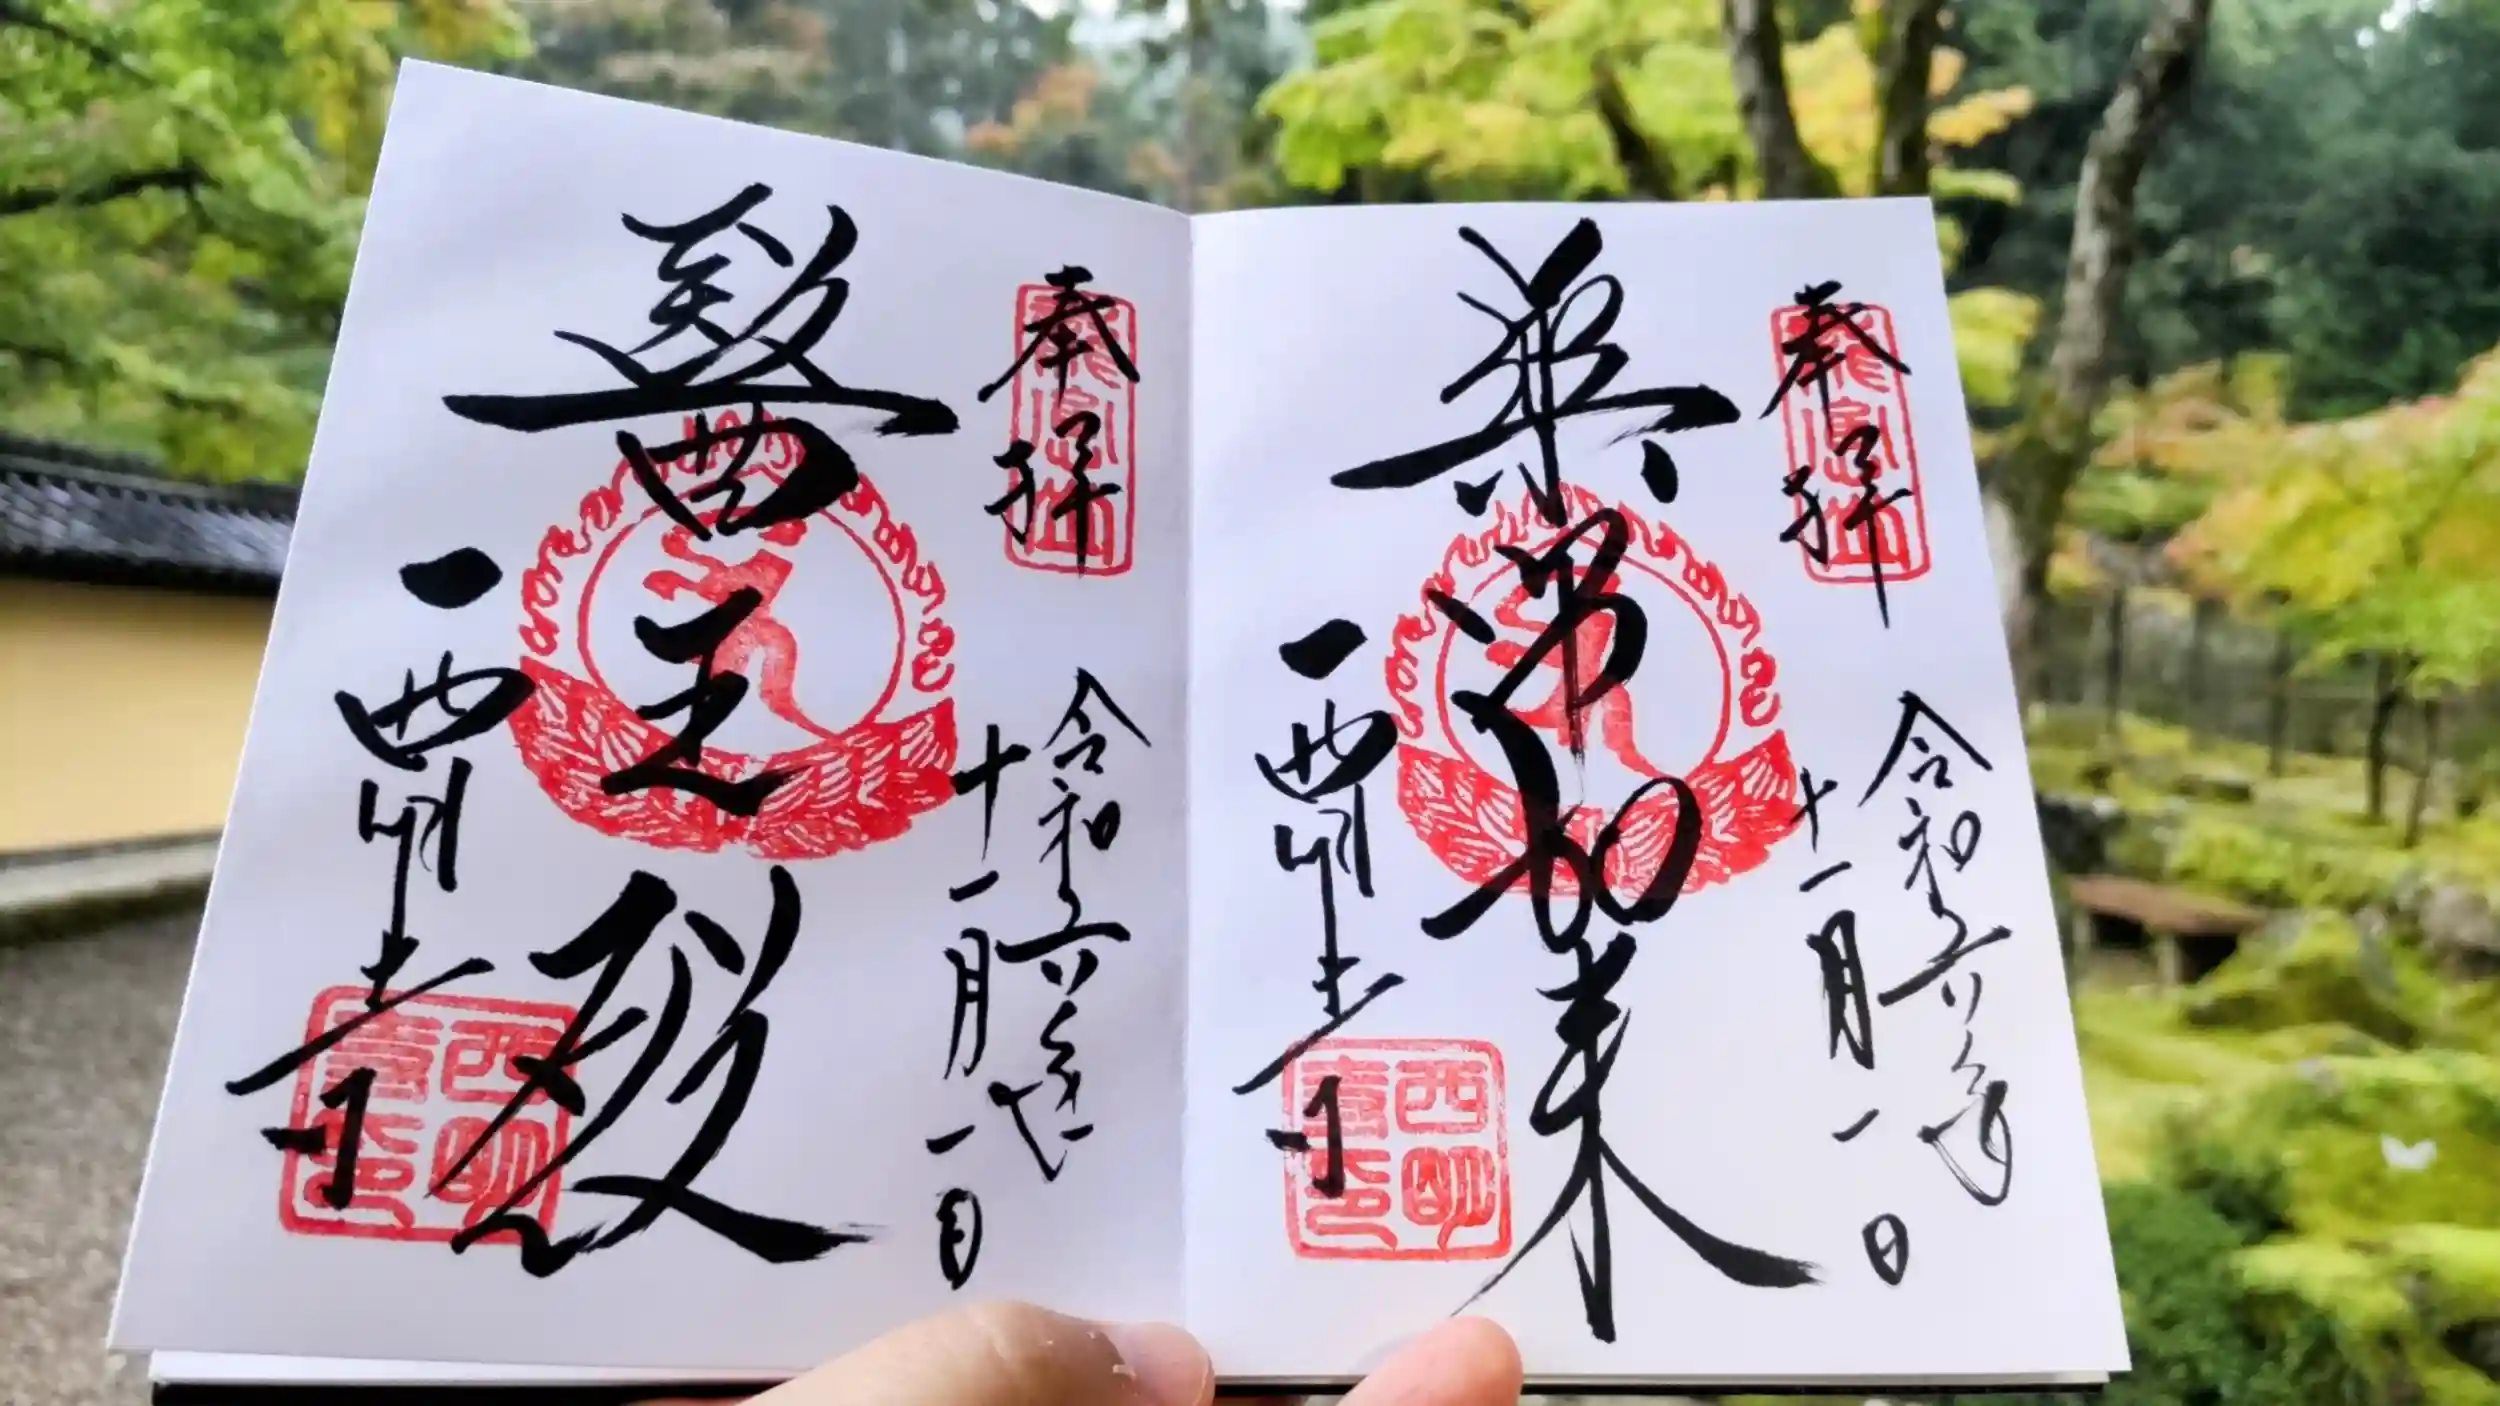 奉拝
龍應山
令和六年
十一月一日
薬師如来
西明寺
西明寺印
奉拝
龍應山
令和六年
十一月一日
醫王殿
西明寺
西明寺印